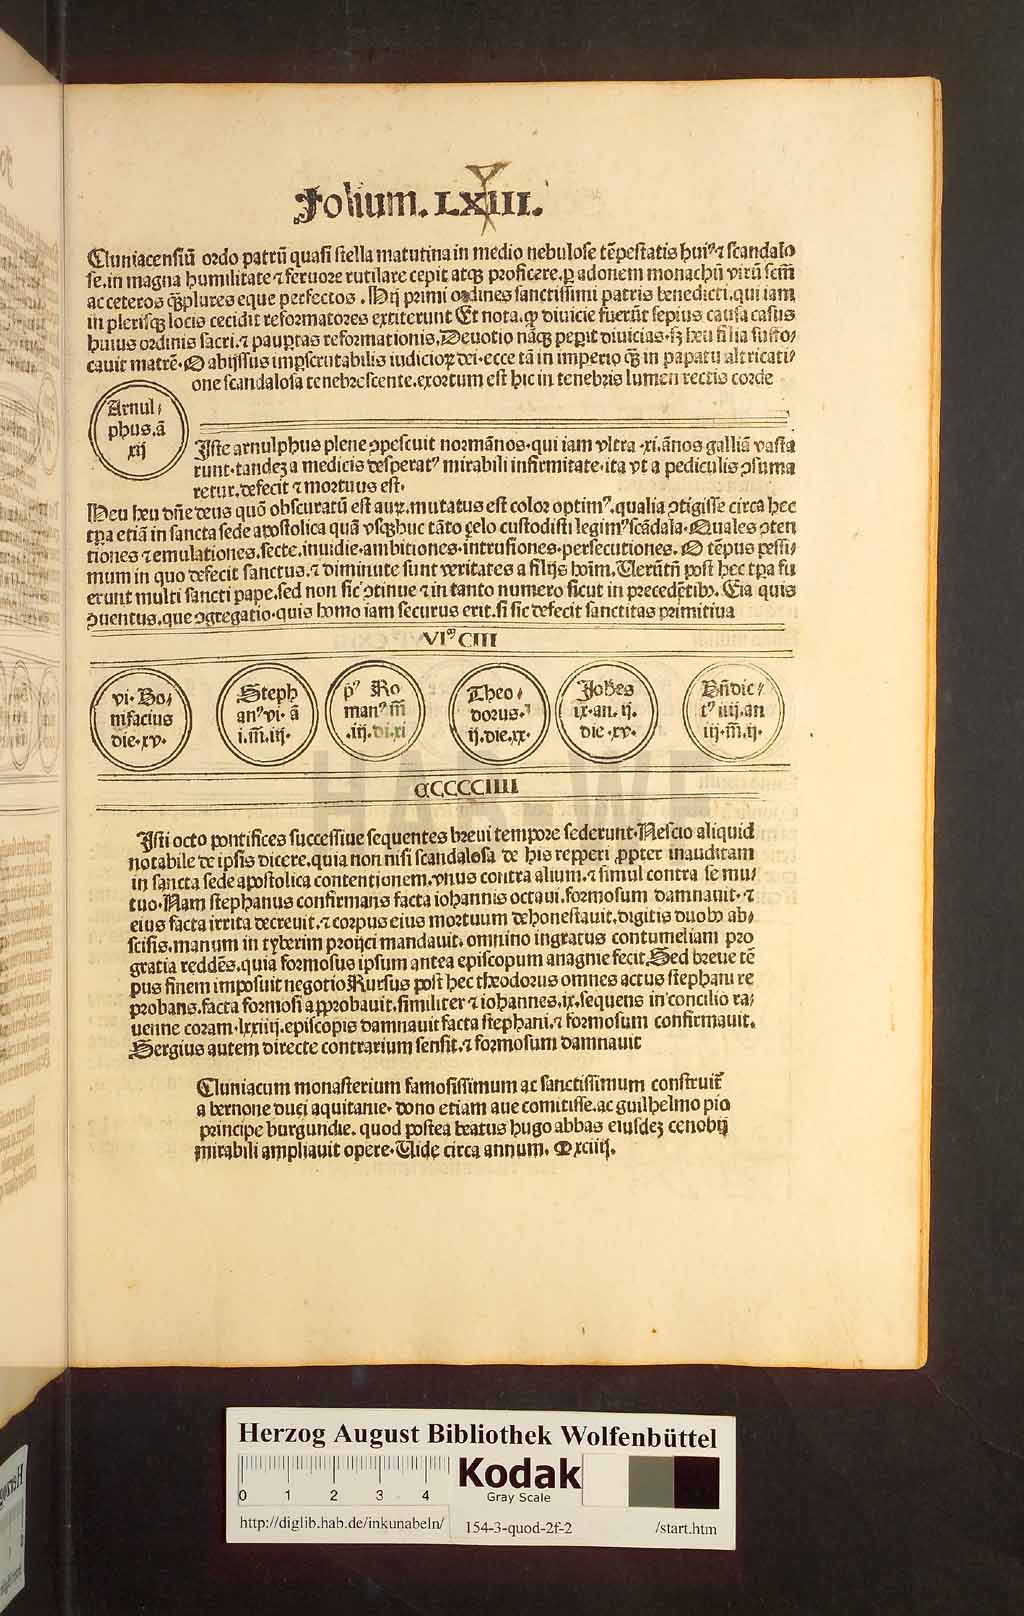 Folium. LXIII.
Cluniacensiū ordo patrū quasi stella matutina in medio nebulose tēpestatis huiꝰ ⁊ scandalo
se. in magna humilitate ⁊ feruore rutilare cepit atqꝫ proficere. ꝑ adonem monachū virū scm̄
ac ceteros qꝫplures eque perfectos. Hij primi ordines sanctissimi patris benedicti. qui iam
in plerisqꝫ locis cecidit reformatores extiterunt Et nota. ꝙ diuicie fuerūt sepius causa casus
huius ordinis sacri. ⁊ pauꝑtas reformationis. Deuotio nāqꝫ peꝑit diuicias. sꝫ heu filia suffo⸗
cauit matrē. O abijssus imꝑscrutabilis iudicioꝝ dei. ecce tā in imperio qꝫ in papatu altricati⸗
one scandalosa tenebrescente. exortum est hic in tenebris lumen rectis corde
Arnul⸗
phus. ā
xij
Iste arnulphus plene ↄpescuit normānos. qui iam vltra .xl. ānos galliā vasta
runt. tandeꝫ a medicis desperatꝰ mirabili infirmitate. ita vt a pediculis ↄsuma
retur. defecit ⁊ mortuus est.
Heu heu dn̄e deus quō obscuratū est auꝝ. mutatus est color optimꝰ. qualia ↄtigisse circa hec
tꝑa etiā in sancta sede apostolica quā vsqꝫhuc tāto çelo custodisti legimꝰ scādala. Quales ↄten
tiones ⁊ emulationes. secte. inuidie. ambitiones. intrusiones. persecutiones. O tēpus pessi⸗
mum in quo defecit sanctus. ⁊ diminute sunt veritates a filijs hoīm. Uerūtn̄ post hec tꝑa fu
erunt multi sancti pape. sed non sic ↄtinue ⁊ in tanto numero sicut in precedētibꝫ. Eia quis
ↄuentus. que ↄgregatio. quis homo iam securus erit. si sic defecit sanctitas primitiua
VIᵐ CIII
vi. Bo⸗
nifacius
die. xv.
Steph
anꝰ vi. ā
i. m̄. iij.
pꝰ Ro
manꝰ m̄
.iij. di. xi
Theo⸗
dorus.
ij. die. xx.
Joh̄es
ix. an. ij.
die .xv.
Bn̄dic⸗
tꝰ iiij. an
iij. m̄. ij.
CCCCCIIII
Isti octo pontifices successiue sequentes breui tempore sederunt. Nescio aliquid
notabile de ipsis dicere. quia non nisi scandalosa de his repperi ꝓpter inauditam
in sancta sede apostolica contentionem. vnus contra alium. ⁊ simul contra se mu⸗
tuo. Nam stephanus confirmans facta iohannis octaui. formosum damnauit. ⁊
eius facta irrita decreuit. ⁊ corpus eius mortuum dehonestauit. digitis duobꝫ ab⸗
scisis. manum in tyberim proijci mandauit. omnino ingratus contumeliam pro
gratia reddēs. quia formosus ipsum antea episcopum anagnie fecit. Sed breue tē
pus finem imposuit negotio. Rursus post hec theodorus omnes actus stephani re
probans. facta formosi approbauit. similiter ⁊ iohannes. ix. sequens in concilio ra⸗
uenne coram. lxxiiij. episcopis damnauit facta stephani. ⁊ formosum confirmauit.
Sergius autem directe contrarium sensit. ⁊ formosum damnauit
Cluniacum monasterium famosissimum ac sanctissimum construit̄
a bernone duci aquitanie. dono etiam aue comitisse. ac guilhelmo pio
principe burgundie. quod postea beatus hugo abbas eiusdeꝫ cenobij
mirabili ampliauit opere. Uide circa annum. Mxciiij.
Herzog August Bibliothek Wolfenbüttel
0 1 2 3 4
Kodak
Gray Scale
http://diglib.hab.de/inkunabeln/ 154-3-quod-2f-2 /start.htm